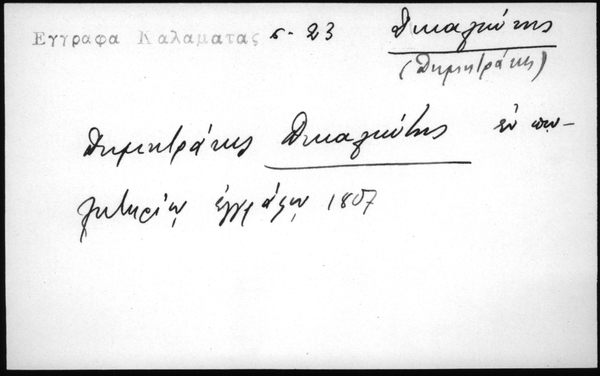 Εγγραφα Καλαματας σ. 23 Δικαιώτης
(Δημητράκης)
Δημητράκης Δικαιώτης ἐν πω-
λητηρίῳ ἐγγράφῳ 1807